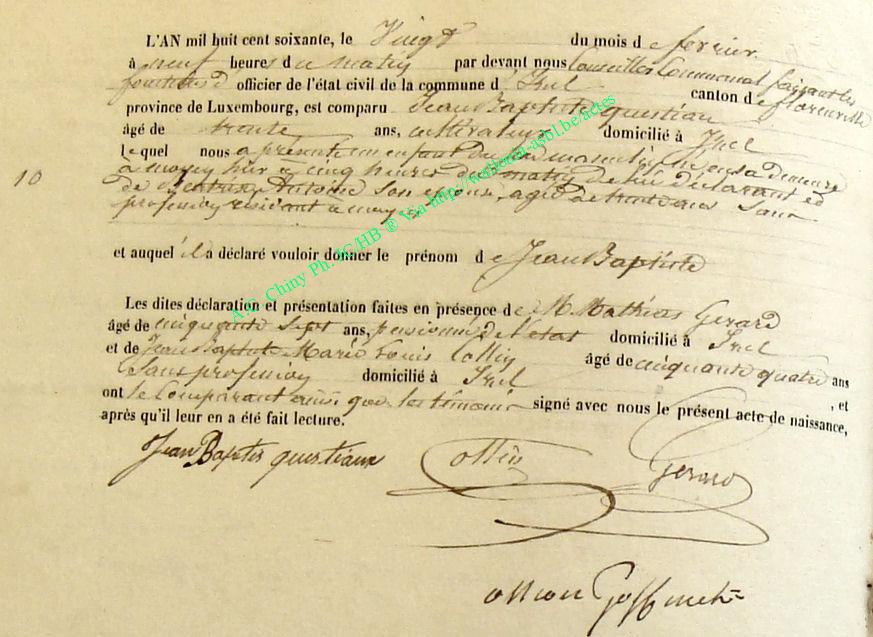 L'AN mil huit cent soixante, le Vingt du mois de fevrier
à neuf heures du matin par devant nous Conseiller Communal faisant les
fonctions d officier de l'état civil de la commune d'Izel canton de florenville
province de Luxembourg, est comparu Jean Baptiste questiau
âgé de trente ans, cultivateur domicilié à Izel
lequel nous a présenté un enfant du sexe masculin, né en sa demeure
10
à moyen hier à cinq heures du matin de lui déclarant et
de Antoine son épouse, agée de trente ans Sans
profession résidant à moyen
et auquel il a déclaré vouloir donner le prénom de Jean Baptiste
Les dites déclaration et présentation faites en présence de M. Mathias Gerard
âgé de cinquante Sept ans, pensionné de l'état domicilié à Izel
et de Jean Baptiste Marie Louis Collin âgé de cinquante quatre ans
Sans profession domicilié à Izel , et
ont le Comparant ainsi que les témoins signé avec nous le présent acte de naissance,
après qu'il leur en a été fait lecture.
Jean Baptis questiaux Collin Gerard
Goffinet
A.C. Chiny Ph. JC/HB ® Via http://wallonia-asbl.be/actes